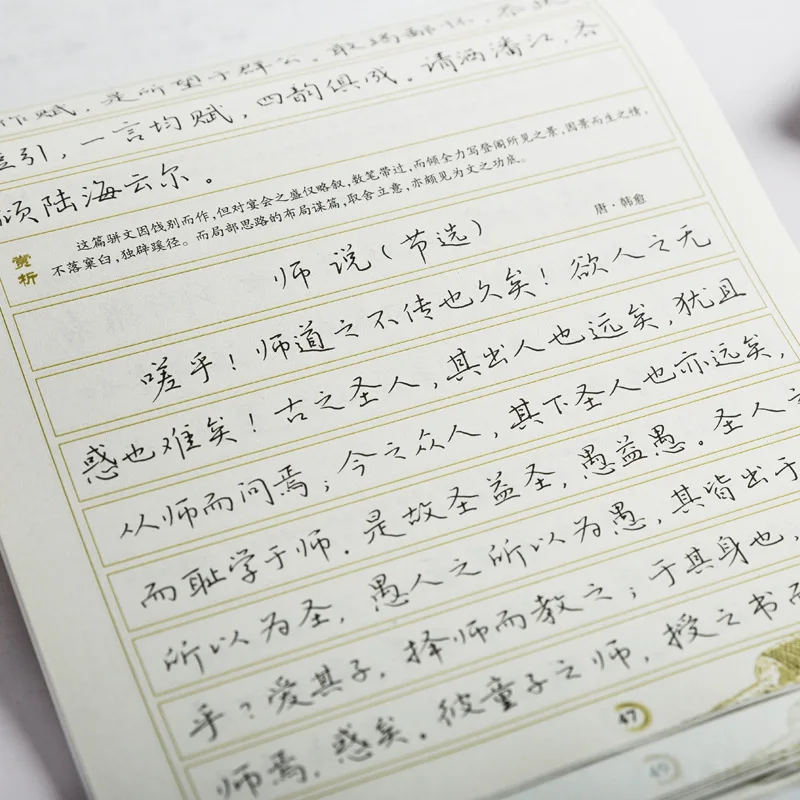 作赋，是所望于群公。敢竭鄙怀，恭
引，一言均赋，四韵俱成。请洒潘江，各
倾陆海云尔。
赏析
这篇骈文因饯别而作，但对宴会之盛仅略叙，数笔带过，而倾全力写登阁所见之景，因景而生之情，
不落窠臼，独辟蹊径。而局部思路的布局谋篇，取舍立意，亦颇见为文之功底。
师说（节选）
唐·韩愈
嗟乎！师道之不传也久矣！欲人之无
惑也难矣！古之圣人，其出人也远矣，犹且
从师而问焉；今之众人，其下圣人也亦远矣，
而耻学于师。是故圣益圣，愚益愚。圣人之
所以为圣，愚人之所以为愚，其皆出于
乎？爱其子，择师而教之；于其身也，
师焉，惑矣。彼童子之师，授之书而
47
49